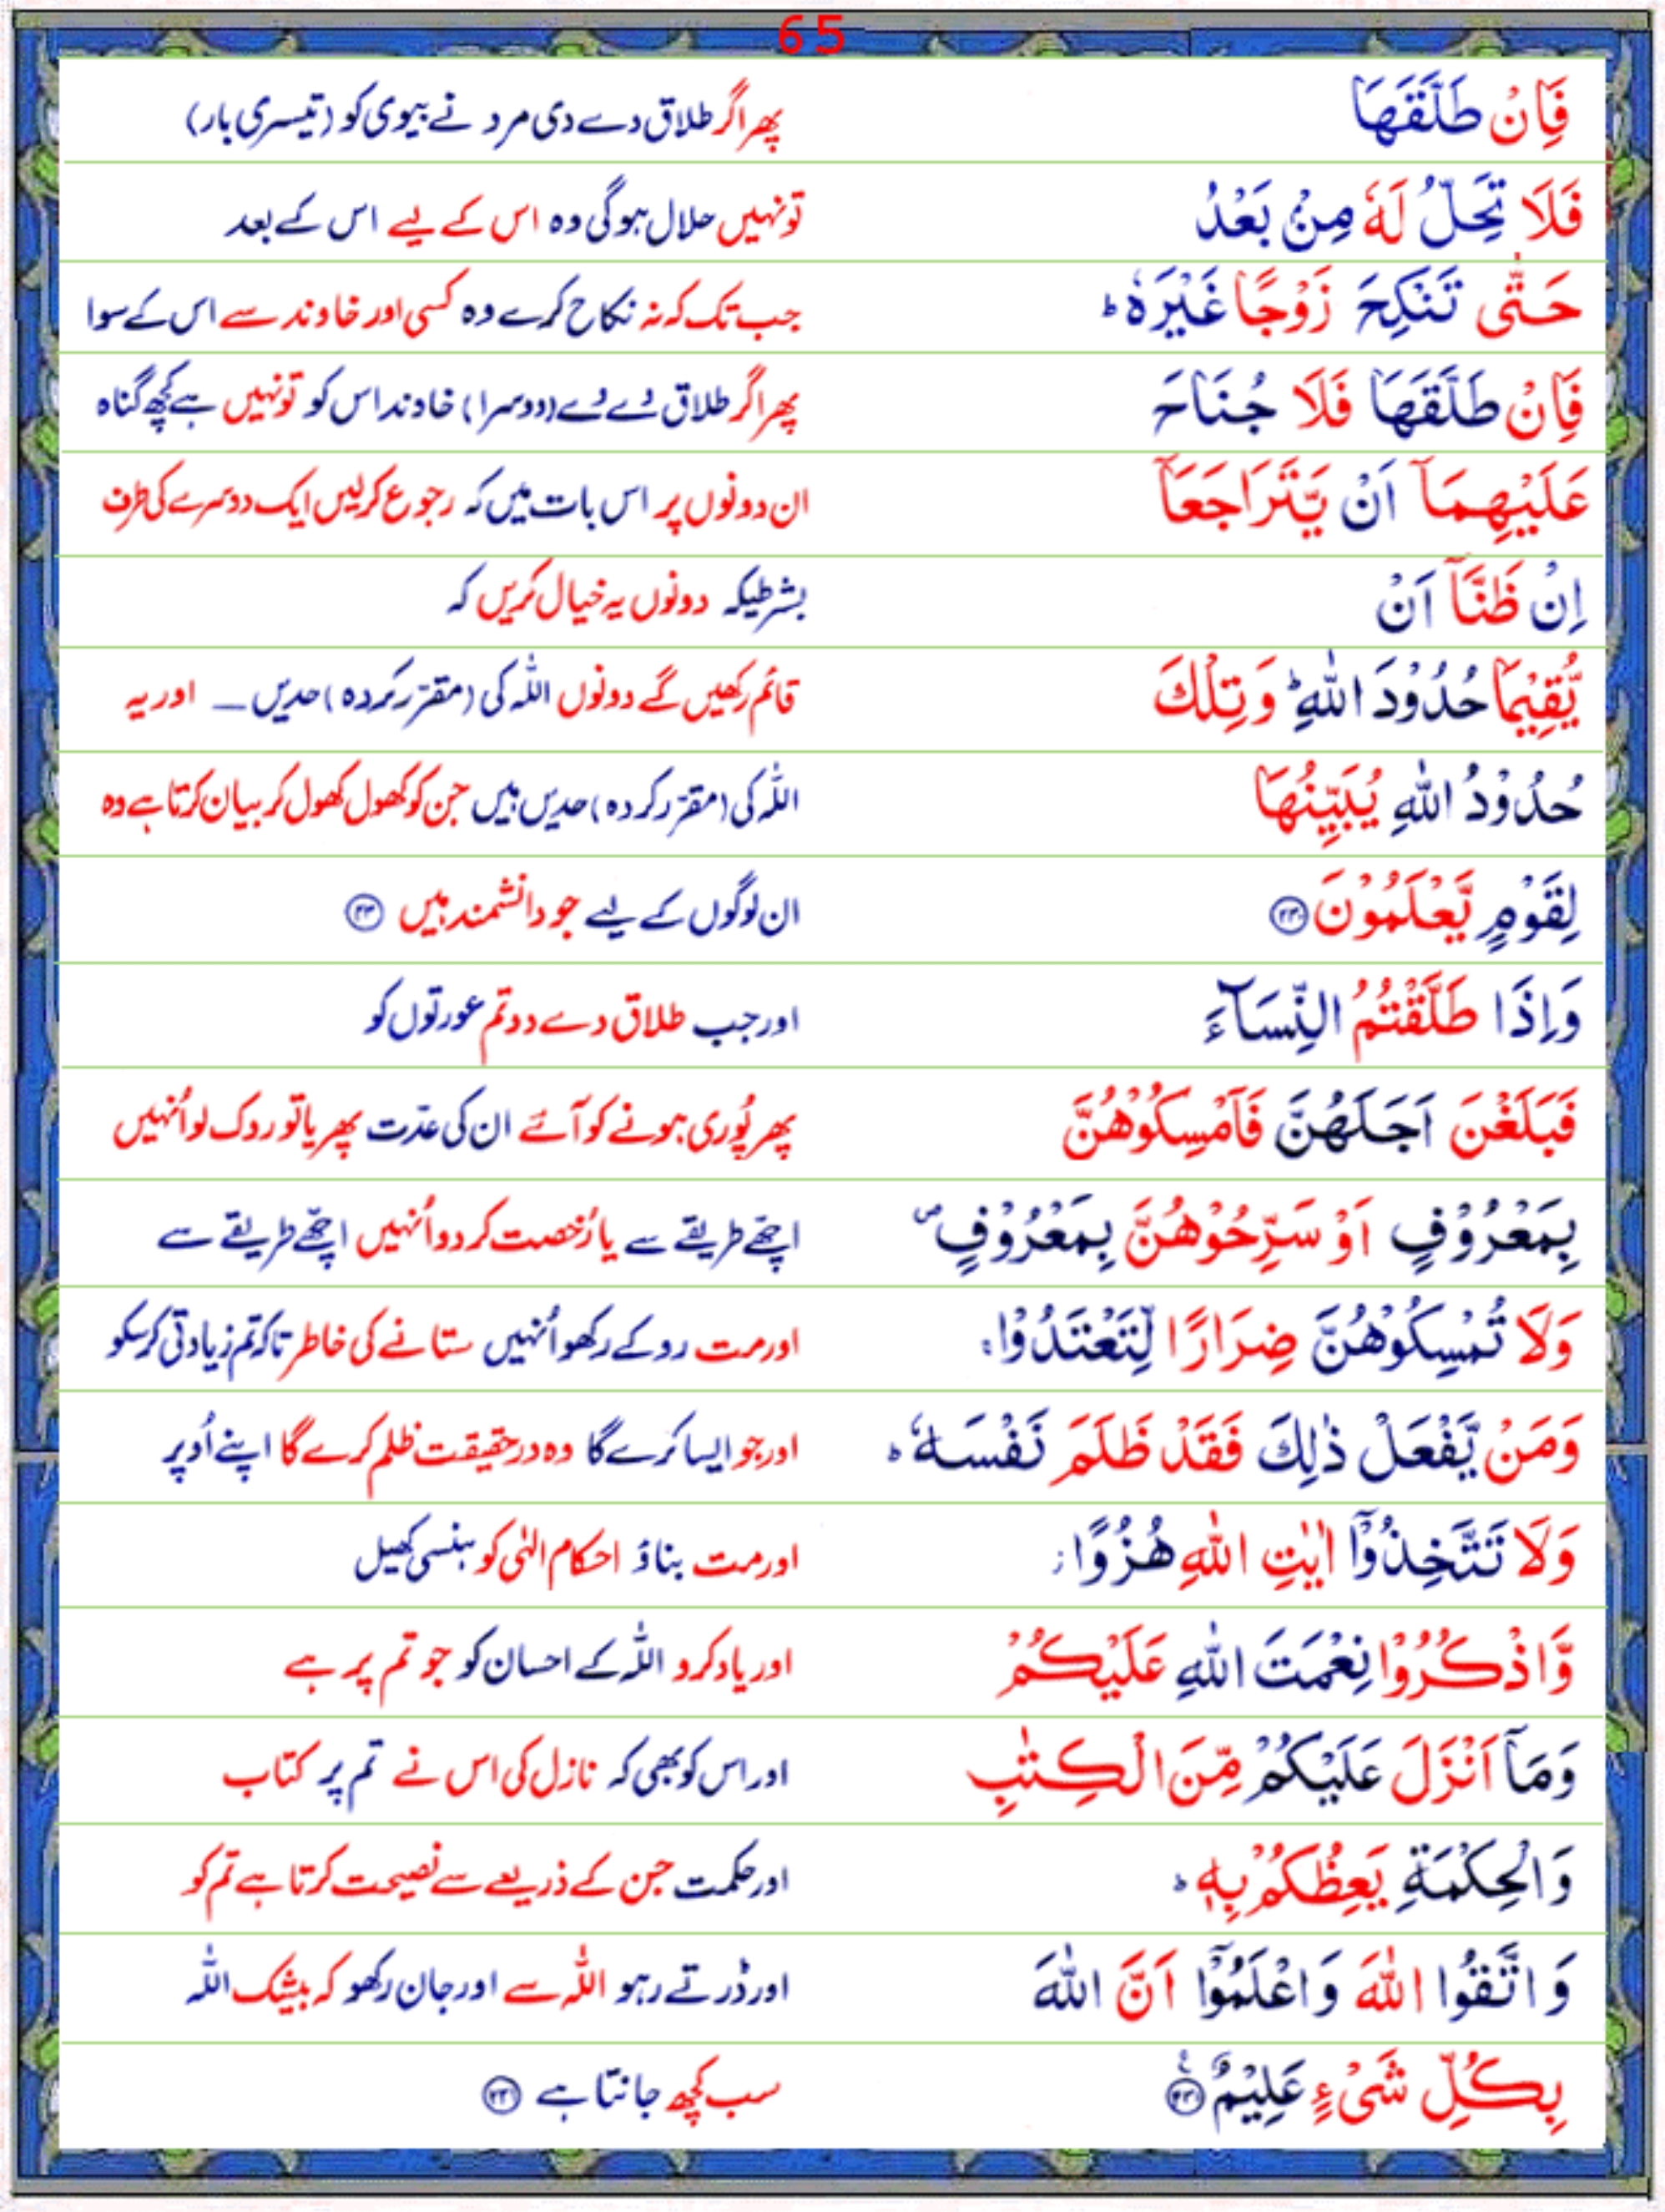 65
فَاِنْ طَلَّقَهَا پھر اگر طلاق دے دی مرد نے بیوی کو (تیسری بار)
فَلَا تَحِلُّ لَهٗ مِنْۢ بَعْدُ تو نہیں حلال ہوگی وہ اس کے لیے اس کے بعد
حَتّٰى تَنْكِحَ زَوْجًا غَيْرَهٗ ؕ جب تک کہ نہ نکاح کرے وہ کسی اور خاوند سے اس کے سوا
فَاِنْ طَلَّقَهَا فَلَا جُنَاحَ پھر اگر طلاق دے دے (دوسرا) خاوند اس کو تو نہیں ہے کچھ گناہ
عَلَيْهِمَآ اَنْ يَّتَرَاجَعَآ ان دونوں پر اس بات میں کہ رجوع کرلیں ایک دوسرے کی طرف
اِنْ ظَنَّآ اَنْ بشرطیکہ دونوں یہ خیال کریں کہ
يُّقِيْمَا حُدُوْدَ اللّٰهِ ؕ وَتِلْكَ قائم رکھیں گے دونوں اللہ کی (مقرّر کردہ) حدیں ــ اور یہ
حُدُوْدُ اللّٰهِ يُبَيِّنُهَا اللہ کی (مقرّر کردہ) حدیں ہیں جن کو کھول کھول کر بیان کرتا ہے وہ
لِقَوْمٍ يَّعْلَمُوْنَ ۲۳۰ ان لوگوں کے لیے جو دانشمند ہیں ۲۳۰
وَاِذَا طَلَّقْتُمُ النِّسَآءَ اور جب طلاق دے دو تم عورتوں کو
فَبَلَغْنَ اَجَلَهُنَّ فَاَمْسِكُوْهُنَّ پھر پُوری ہونے کو آئے ان کی عدّت پھر یا تو روک لو اُنہیں
بِمَعْرُوْفٍ اَوْ سَرِّحُوْهُنَّ بِمَعْرُوْفٍ ۪ اچھے طریقے سے یا رُخصت کر دو اُنہیں اچھے طریقے سے
وَلَا تُمْسِكُوْهُنَّ ضِرَارًا لِّتَعْتَدُوْا ۚ اور مت روکے رکھو اُنہیں ستانے کی خاطر تاکہ تم زیادتی کرسکو
وَمَنْ يَّفْعَلْ ذٰلِكَ فَقَدْ ظَلَمَ نَفْسَهٗ ؕ اور جو ایسا کرے گا وہ درحقیقت ظلم کرے گا اپنے اُوپر
وَلَا تَتَّخِذُوْٓا اٰيٰتِ اللّٰهِ هُزُوًا ؗ اور مت بناؤ احکام الٰہی کو ہنسی کھیل
وَّاذْكُرُوْا نِعْمَتَ اللّٰهِ عَلَيْكُمْ اور یاد کرو اللہ کے احسان کو جو تم پر ہے
وَمَآ اَنْزَلَ عَلَيْكُمْ مِّنَ الْكِتٰبِ اور اس کو بھی کہ نازل کی اس نے تم پر کتاب
وَالْحِكْمَةِ يَعِظُكُمْ بِهٖ ؕ اور حکمت جن کے ذریعے سے نصیحت کرتا ہے تم کو
وَاتَّقُوا اللّٰهَ وَاعْلَمُوْٓا اَنَّ اللّٰهَ اور ڈرتے رہو اللہ سے اور جان رکھو کہ بیشک اللہ
بِكُلِّ شَىْءٍ عَلِيْمٌ ۲۳۱ سب کچھ جانتا ہے ۲۳۱